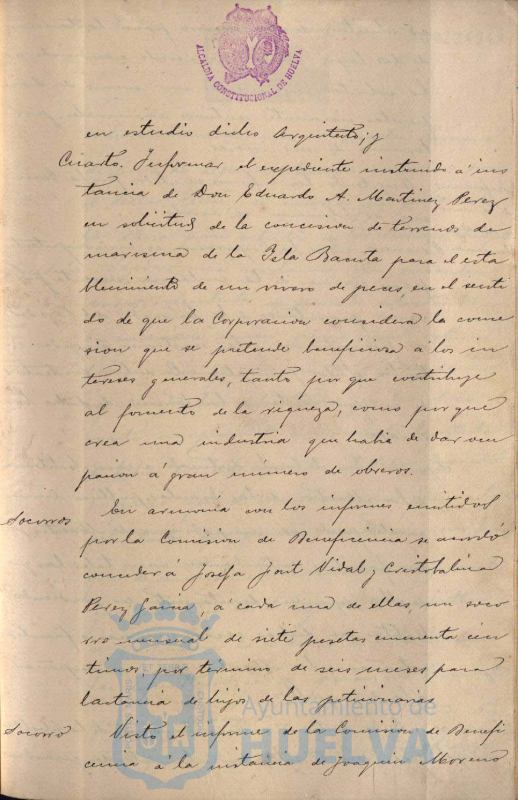 ALCALDIA CONSTITUCIONAL DE HUELVA
en estudio dicho Arquitecto; y
Cuarto. Informar el expediente instruido á ins
tancia de Don Eduardo A. Martinez Perez
en solicitud de la concesion de terrenos de
marisma de la Isla Bacuta para el esta
blecimiento de un vivero de peces, en el senti
do de que la Corporacion considera la conce
sion que se pretende beneficiosa á los in
tereses generales, tanto por que contribuye
al fomento de la riqueza, como por que
crea una industria que habia de dar ocu
pacion á gran número de obreros.
Socorros
En armonia con los informes emitidos
por la Comision de Beneficencia se acordó
conceder á Josefa Vidal y Cristobalina
Perez, á cada una de ellas, un soco
rro mensual de siete pesetas cincuenta cén
timos, por término de seis meses para
lactancia de hijos de las peticionarias
Socorro
Visto el informe de la Comision de Benefi
cencia á la instancia de Joaquin Moreno
Ayuntamiento de
HUELVA